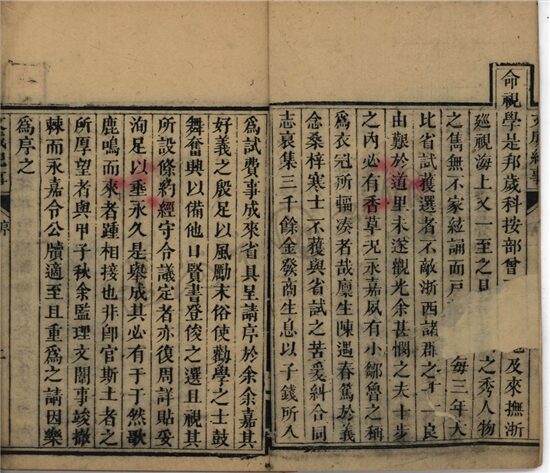 命視學是邦歲科按部曾　　　　及來撫浙
廵視海上又一至之見　　　之秀人物
之雋無不家絃誦而戸　　　每三年大
比省試獲選者不敵浙西諸郡之十一良
由艱於道里未遂觀光余甚憫之夫十步
之內必有香草况永嘉夙有小鄒魯之稱
爲衣冠所輻凑者哉廩生陳遇春篤於義
念桑梓寒士不獲與省試之苦爰糾合同
志裒集三千餘金發商生息以子錢所入
爲試費事成來省具呈請序於余余嘉其
好義之殷足以風勵末俗使勸學之士鼓
舞奮興以備他日賢書登俊之選且視其
所設條約經守令議定者亦復周詳貼妥
洵足以垂永久是舉成其必有于于然歌
鹿鳴而來者踵相接也非卽官斯土者之
所厚望者與甲子秋余監理文闈事竣撤
棘而永嘉令公牘適至且重爲之請因樂
爲序之
序